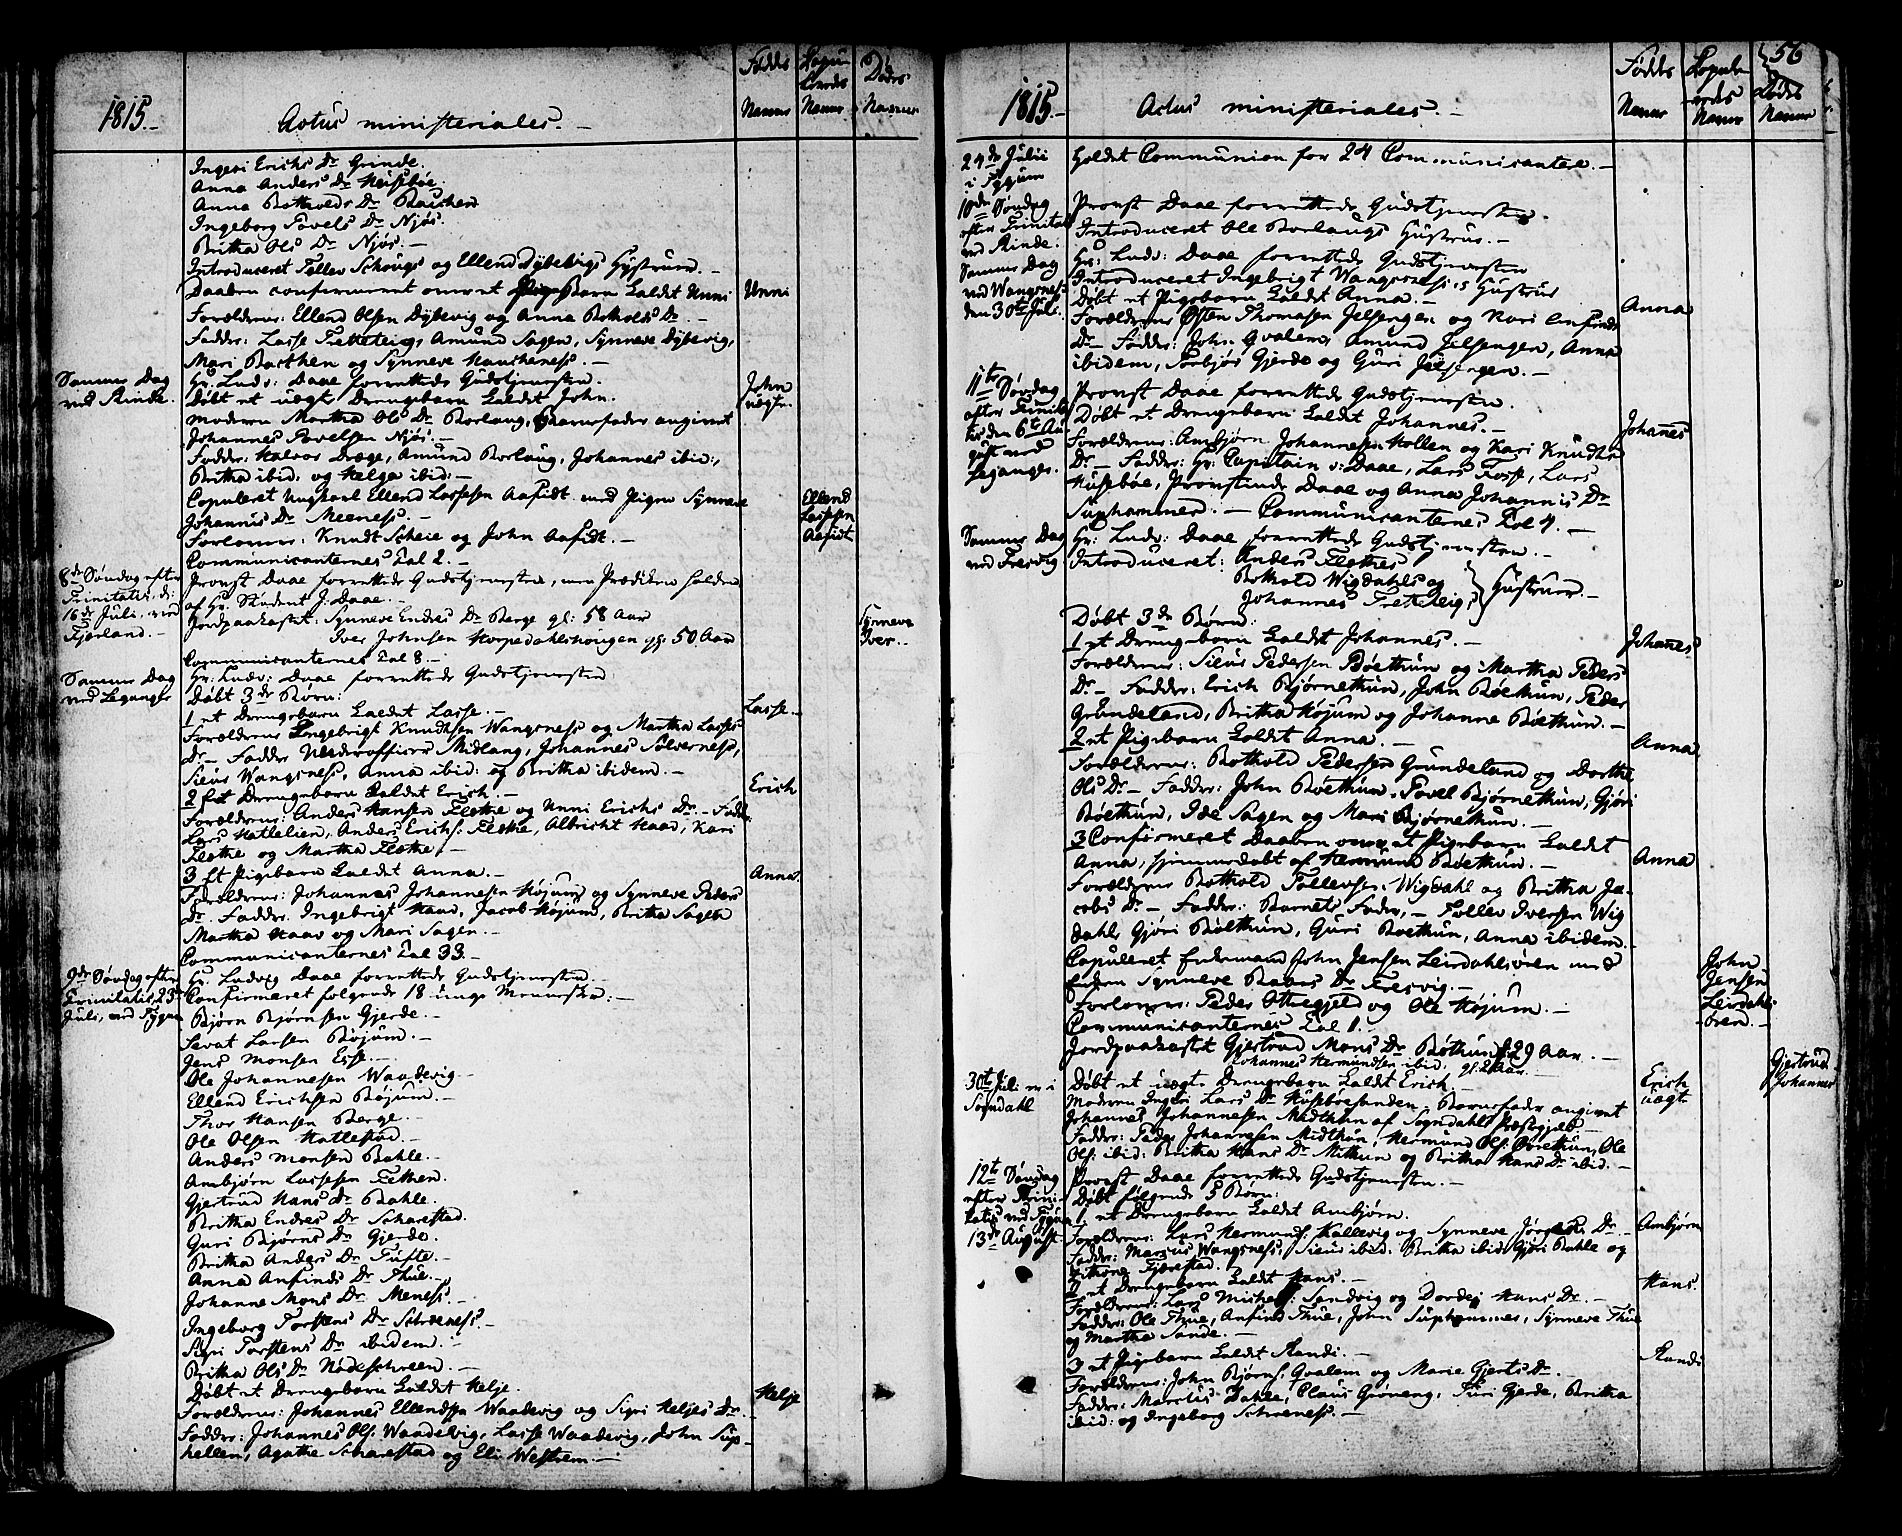 1815.-
Actus ministeriales. -
Fødde Navne
Copulerede Navne
Døde Navne
Ingeri Erichs Dr Grinde.
Anna Anders Dr Husebøe.
Anna Botholds Dr
Ingeborg Povels Dr Njøs.
Britha Ols Dr Njøs. -
Introduceret Tollev Schougs og Ellend Dybevigs Hustruer. -
Daaben confirmeret over et Pigebarn kaldet Unni
Unni
Forældrene: Ellend Olsen Dybevig og Anna Botholds Dr. -
Fadder: Lasse Fretteteig, Amund Sagen, Synneve Dybevig,
Mari Barthen og Synneve -
Samme Dag
ved Rinde.
Hr: Ludv: Daae forrettede Gudstjenesten.
Døbt et uægt Drengebarn kaldet John.
John
uægte.
Moderen Martha Ols Dr Borlaug, Barnefader angivet
Johannes Povelsen Njøs. -
Fadder: Halvor Drege, Amund Borlaug, Johannes ibid:,
Britha ibid. og Helga ibid. -
Copuleret Ungkarl Ellend Lassesen Aafedt med Pigen Synneve
Johannis Dr Meeness. -
Ellend
Lassesen
Aafedt
Forlovere: Knudt Scheie og John Aafedt. -
Communicanternes Tal 2. -
8de Søndag efter
Trinitatis, d:
16de Juli, ved
Fjærland. -
Provst Daae forrettede Gudstjenesten, men Prædiken holden
af Hr. Student J. Daae. -
Jordpaakastet: Synneve Endres Dr Berge gl: 58 Aar
Iver Johnsen Horpedahlshougen gl. 50 Aar
Synneve
Iver.
Communicanternes Tal 8. -
Samme Dag
ved Leganger
Hr: Ludv: Daae forrettede Gudstjenesten
Døbt 3de Børn:
1 et Drengebarn kaldet Lasse. -
Lasse. -
Forældrene Engebrigt Knudtsen Wangsness og Martha Lasses
Dr - Fadder Underofficer Midlang, Johannes Sølverness,
Sieur Wangsness, Anna ibid: og Britha ibidem. -
2 et Drengebarn kaldet Erich. -
Erich
Forældrene: Anders Hansen Flethe og Unni Erichs Dr - Fadder:
Lars Hatlelien, Anders Erichs: Flethe, Albricht Haad, Kari
Flethe og Martha Flethe. -
3 et Pigebarn kaldet Anna. -
Anna.
Forældrene: Johannes Johannesen Højum og Synneve Peders
Dr. Fadder. Ingebrigt Haad, Jacob Højum, Britha Sagen
Martha Haav og Mari Sagen. -
Communicanternes Tal 33. -
9de Søndag efter
Trinitatis, 23de
Juli, ved Tygum
Hr. Ludvig Daae forrettede Gudstjenesten. -
Confirmeret følgende 18 unge Mennesker: -
Bjørn Bjørnsen Gjerde. -
Sevat Larsen Bøjum. -
Jens Monsen Esse. -
Ole Johannesen Waadevig -
Ellend Erichsen Bøjum. -
Thor Hansen Berge. -
Ole Olsen Hatlestad. -
Anders Monsen Bahle. -
Ambjørn Lassesen Fethen.
Gjertrud Hans Dr Bahle.
Britha Endres Dr Scharestad.
Guri Bjørns Dr Gjerde.
Britha Anders Dr Tufte. -
Anna Anfinds Dr Thue. -
Johanne Mons Dr Meness. -
Ingeborg Torstens Dr Schreness. -
Sigri Torstens Dr ibidem. -
Britha Ols Dr Nødeschreen. -
Døbt et Drengebarn kaldet Helje.
Helje
Forældrene: Johannes Ellendsen Waadevig og Sigri Heljes Dr. -
Fadder: Johannes Ols: Waadevig, Lasse Waadevig, John Sup-
hellen, Agathe Scharestad og Eli Westrem. -
56
1815.-
Actus ministeriales. -
Fødde Navne
Copulerede Navne
Døde Navne
24de Julii
i Tygum
Holdet Communion for 24 Communicantere. -
10de Søndag
efter Trinitatis
ved Rinde:
Provst Daae forrettede Gudstjenesten.
Introduceret Ole Borlaugs Hustrue. -
Samme Dag
ved Wangsnes
den 30te Juli.
Hr: Ludv: Daae forrettede Gudstjenesten
Introduceret Ingebrigt Wangsness's Hustrue
Døbt et Pigebarn kaldet Anna. -
Anna
Forældrene Østen Thomasen Jelsengen og Kari Anfinds
Dr - Fadder: John Qvalem, Amund Jelsengen, Anna
ibidem, Torbjør Gjerde og Guri Jelsengen. -
11te Søndag
efter Trinita-
tis den 6te Au-
gust ved
Leganger.
Provst Daae forrettede Gudstjenesten.
Døbt et Drengebarn kaldet Johannes. -
Johañes
Forældrene: Ambjørn Johannesen Hollen og Kari Knudts
Dr - Fadder: Hr: Capitain v: Daae, Lars Fosse, Lars
Husebøe, Provstinde Daae og Anna Johannis Dr
Suphammer. - Communicanternes Tal 4. -
Samme Dag
ved Fresvig
Hr: Ludv: Daae forrettede Gudstjenesten. -
Introduceret: Anders Flethes
Bothold Wigdahls og
Johannes Fretteteigs
Hustruer. -
Døbt 3de Børn:
1 et Drengebarn kaldet Johannes. -
Johañes
Forældrene: Sieur Pedersen Bøethun og Martha Peders
Dr - Fadder: Erich Bjørnethun, John Bøethun, Peder
Grundeland, Britha Højum og Johanne Bøethun. -
2 et Pigebarn kaldet Anna. -
Anna
Forældrene: Bothold Pedersen Grundeland og Dorthe
Ols Dr - Fadder: John Bøethun, Povel Bjørnethun, Gjøri
Bøethun, Ide Sagen og Mari Bjørnethun. -
3 Confirmeret Daaben over et Pigebarn kaldet
Anna, hjemmedøbt af Hermund Bøethun. -
Anna
Forældrene Bothold Tollevsen Wigdahl og Britha Ja-
cobs Dr - Fadder: Barnets Fader, - Tollev Iversen Wig
dahl, Gjøri Bøethun, Guri Bøethun, Anna ibidem.
Copuleret Enkemand John Jensen Leirdahlsøren med
Enken Synneve Dr Fresvig. -
John
Jensen
Leirdahls-
øren. -
Forlovere: Peder Ottegjeld og Ole Højum. -
Communicanternes Tal 1.
Jordpaakastet Gjertrud Mons Dr Bøthun gl. 29 Aar. -
Johannes Hermundsen ibid. gl. 2 Aar. -
Gjertrud
Johannes
30te Juli i
Sogndahl
Døbt et uægte Drengebarn kaldet Erich.
Erich
uægt.
Moderen Ingeri Lars Dr Husebøesanden, Barnefader angivet
Johannes Johannesen Midthun af Sogndahls Præstegjæld. -
Fadder: Peder Johannesen Midthun, Hermund Ols: Ørethun, Ole
Ols: ibid: Britha Hans Dr Mithun og Britha Hans Dr ibid. -
12te Søndag
efter Trini-
tatis ved Tygum
13de August.
Provst Daae forrettede Gudstjenesten. -
Døbt følgende 5 Børn:
1 et Drengebarn kaldet Ambjørn.
Ambjørn
Forældrene: Lars Hermunds: Hallevig og Synneve Jørgens Dr -
Fadder: Marcus Wangsness, Sieur ibid. Britha ibid. Gjøri Bahle og
Fjærestad.
2 et Drengebarn kaldet Hans. -
Hans.
Forældrene: Lars Michels: Sendvig og Dordei Hans Dr. -
Fadder: Ole Thue, Anfind Thue, John Suphammer, Synneve Thue
og Martha Sande. -
3 et Pigebarn kaldet Randi. -
Randi
Forældrene: John Bjørns: Qvalem og Marie Gjerts Dr.
Fadder: Marcus Bahle, Claus Grøneng, Turi Gjerde, Britha
ibid: og Ingeborg Schreeness. -